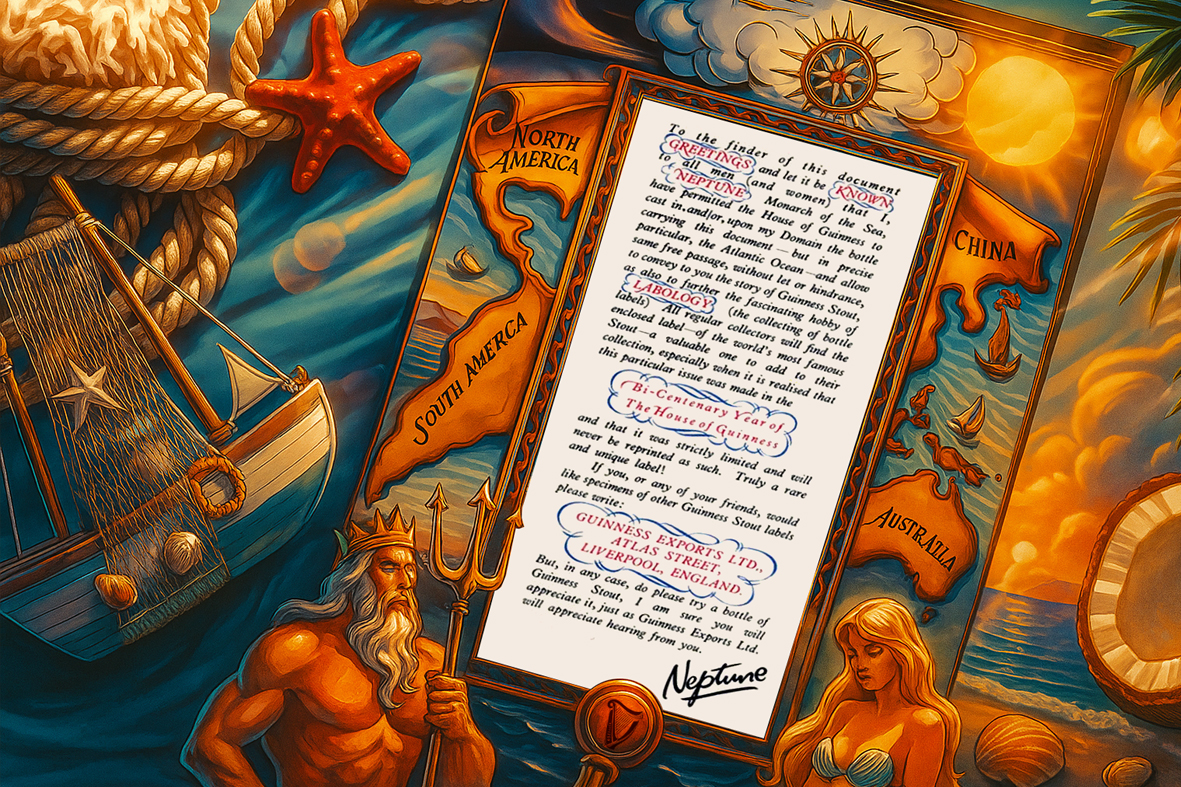 NORTH
AMERICA
SOUTH AMERCA
CHINA
AUSTRALIA
To the finder of this document
GREETINGS and let it be KNOWN
to all men (and women) that I,
NEPTUNE, Monarch of the Sea,
have permitted the House of Guinness to
cast in, and/or, upon my Domain the bottle
carrying this document—but in precise
particular, the Atlantic Ocean—and allow
same free passage, without let or hindrance,
to convey to you the story of Guinness Stout,
as also to further the fascinating hobby of
LABOLOGY (the collecting of bottle
labels) All regular collectors will find the
enclosed label—of the world's most famous
Stout—a valuable one to add to their
collection, especially when it is realised that
this particular issue was made in the
Bi-Centenary Year of
The House of Guinness
and that it was strictly limited and will
never be reprinted as such. Truly a rare
and unique label!
If you, or any of your friends, would
like specimens of other Guinness Stout labels
please write:
GUINNESS EXPORTS LTD.,
ATLAS STREET,
LIVERPOOL, ENGLAND.
But, in any case, do please try a bottle of
Guinness Stout, I am sure you will
appreciate it, just as Guinness Exports Ltd.
will appreciate hearing from you.
Neptune